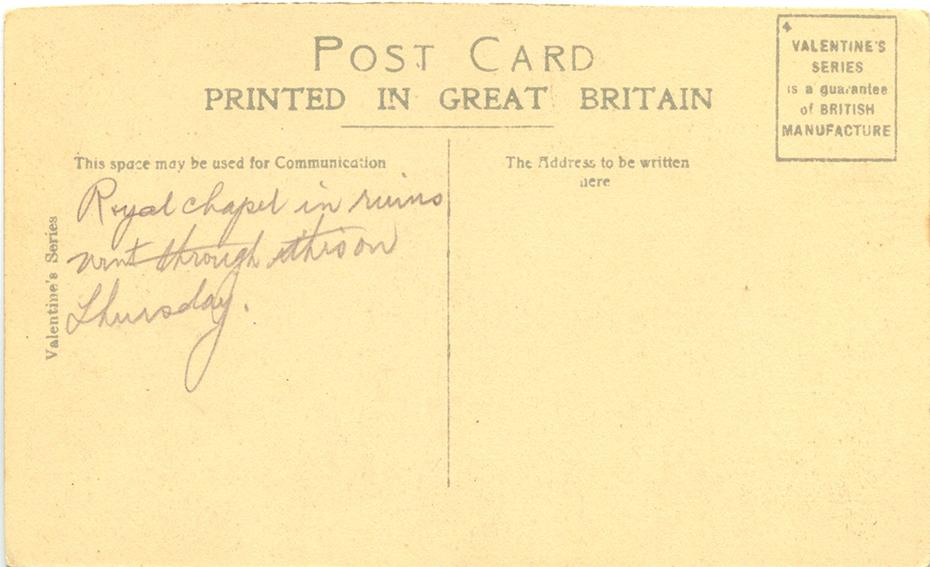 POST CARD
PRINTED IN GREAT BRITAIN
VALENTINE'S
SERIES
is a guarantee
of BRITISH
MANUFACTURE
This space may be used for Communication
Royal chapel in ruins
went through this on
Thursday.
Valentine's Series
The Address to be written
here